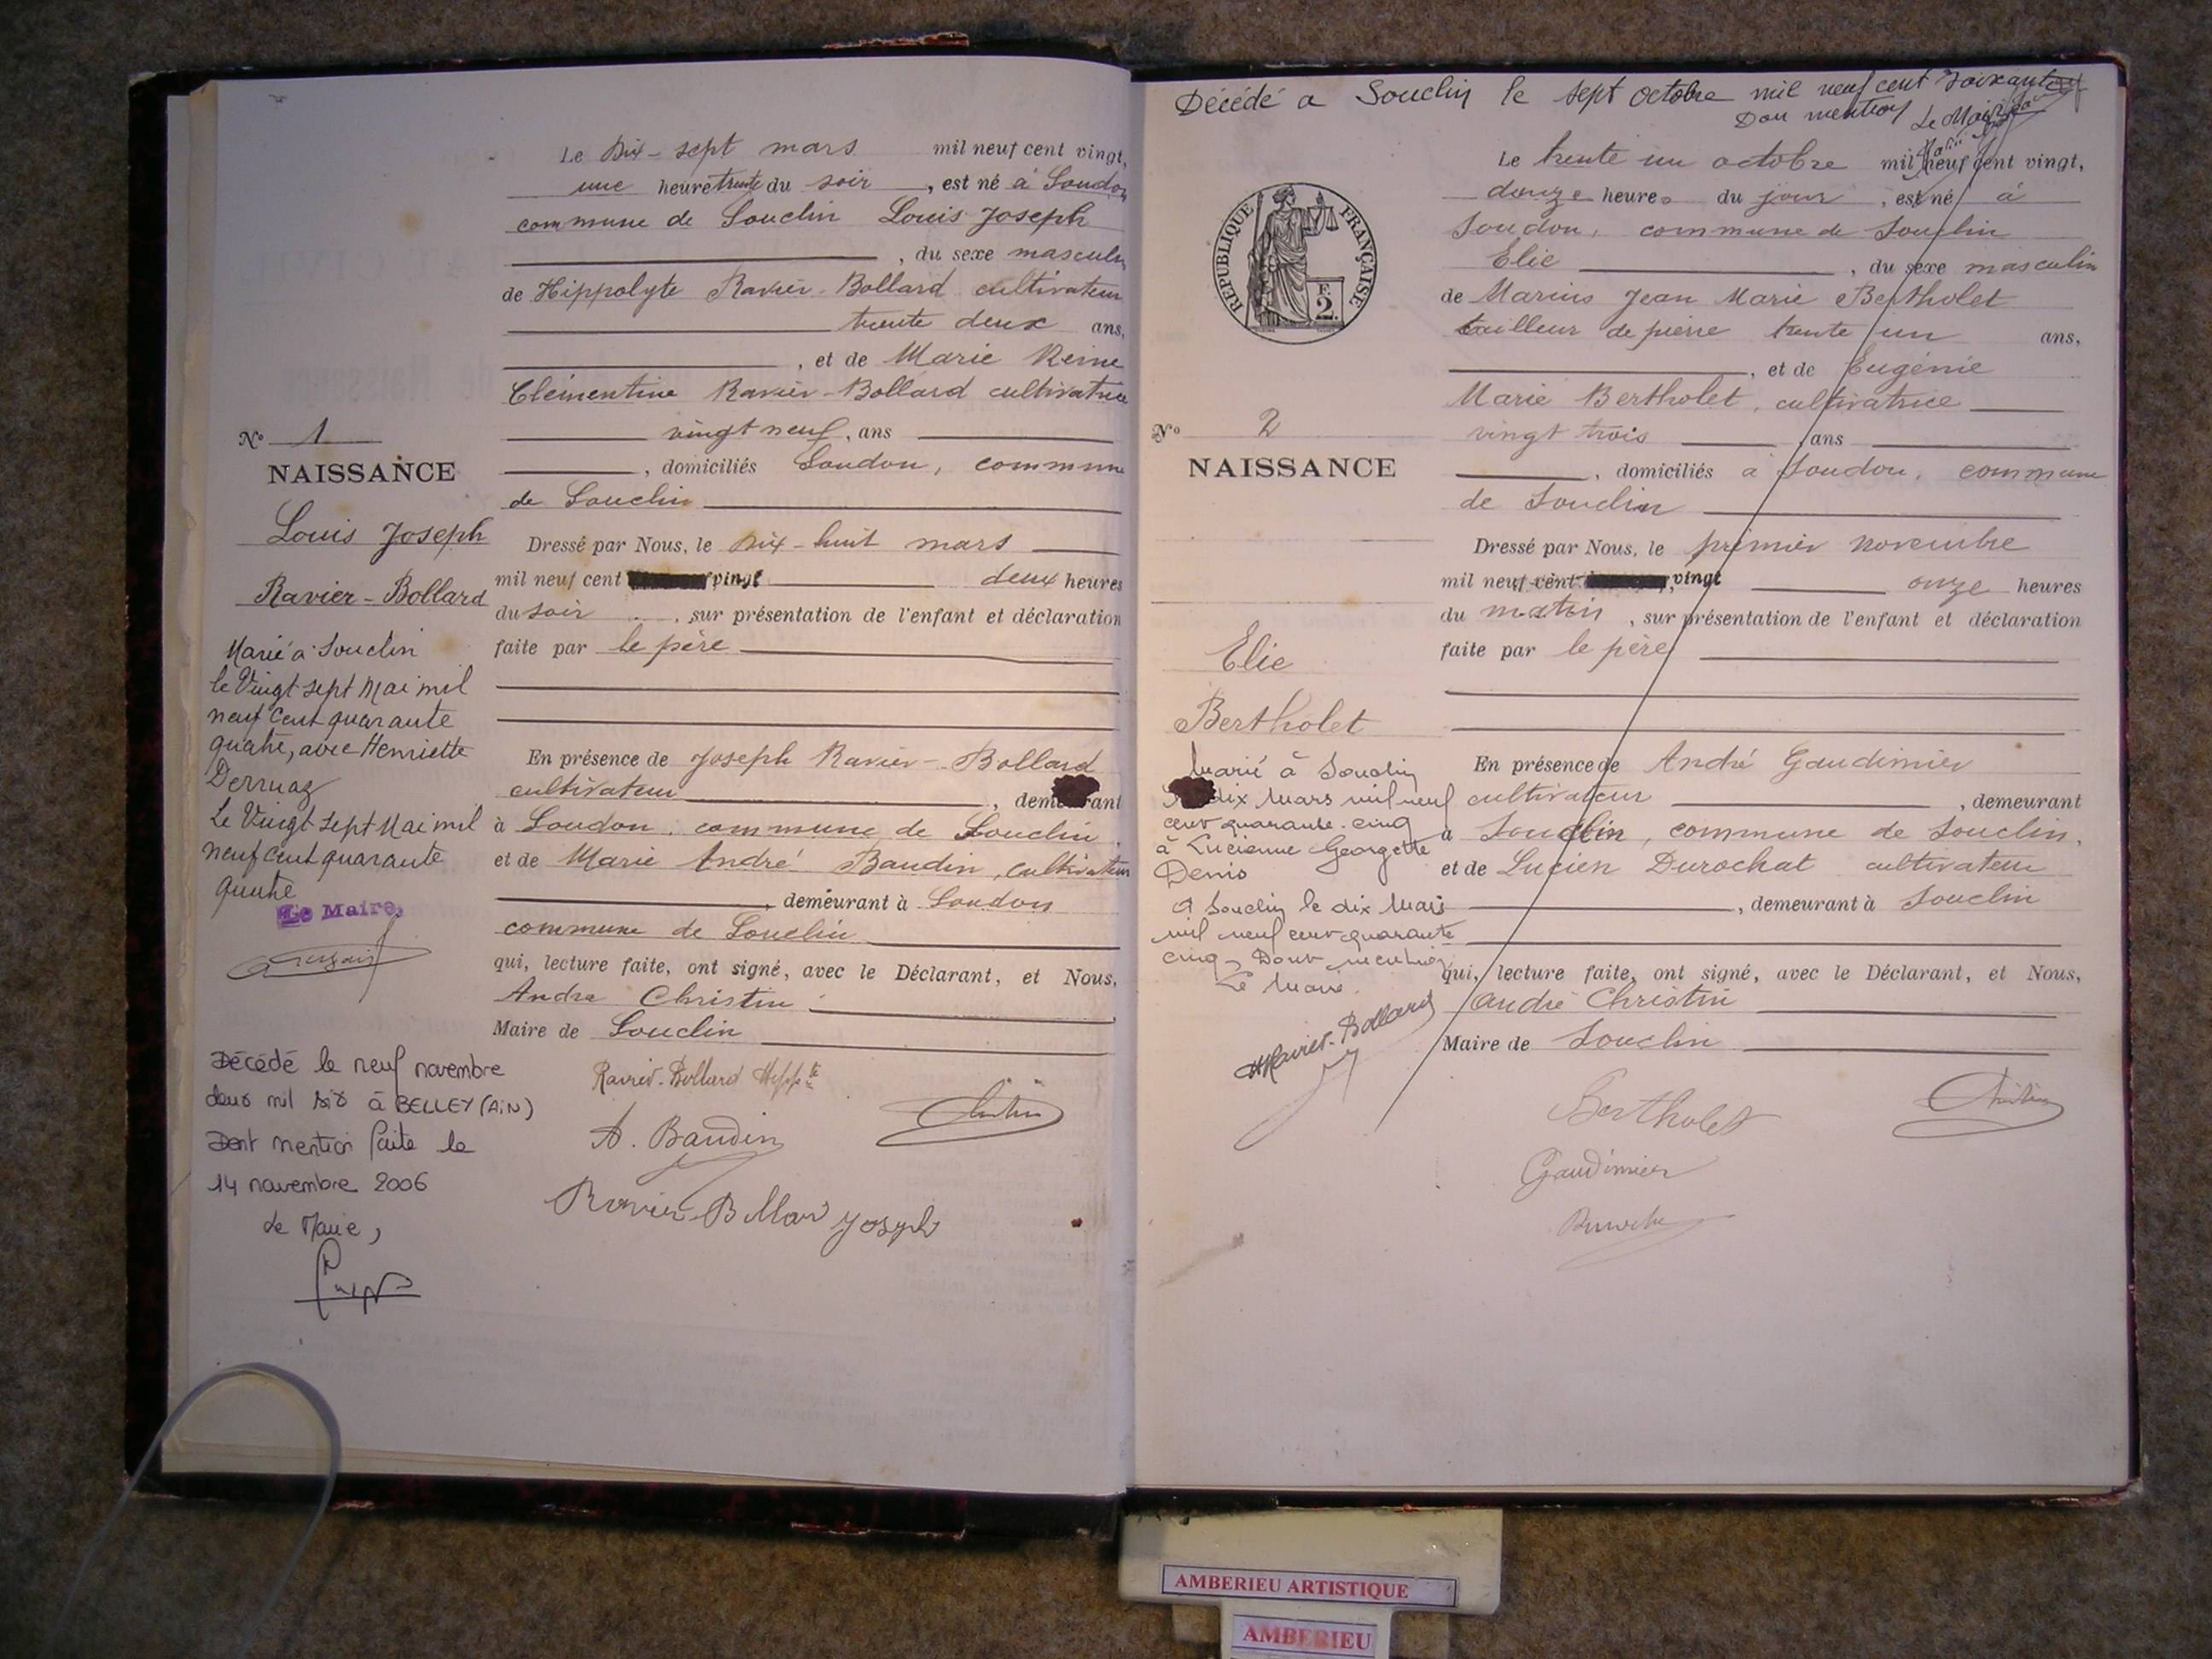 Le Dix-sept mars mil neuf cent vingt,
une heure trente du soir, est né à Soudon
commune de Souclin Louis Joseph
, du sexe masculin
de Hippolyte Ravier-Bollard cultivateur
trente deux ans,
, et de Marie Reine
Clémentine Ravier-Bollard cultivatrice
vingt neuf, ans
, domiciliés Soudon, commune
de Souclin
Dressé par Nous, le Dix-huit mars
mil neuf cent vingt deux heures
du soir, sur présentation de l'enfant et déclaration
faite par le père
En présence de Joseph Ravier-Bollard
cultivateur, demeurant
à Soudon, commune de Souclin,
et de Marie André Baudin, cultivateur
, demeurant à Soudon
commune de Souclin
qui, lecture faite, ont signé, avec le Déclarant, et Nous,
André Christin
Maire de Souclin
Ravier-Bollard Hippte
A. Baudin
Christin
Ravier-Bollard Joseph
No 1
NAISSANCE
Louis Joseph
Ravier-Bollard
Marié à Souclin
le Vingt sept Mai mil
neuf cent quarante
quatre, avec Henriette
Derruaz
Le Vingt sept Mai mil
neuf cent quarante
quatre
Le Maire,
Décédé le neuf novembre
deux mil six à BELLEY (AIN)
Dont mention faite le
14 novembre 2006
Le Maire,
Décédé a Souclin le sept octobre mil neuf cent soixante
Don mention Le Maire
Le trente un octobre mil neuf cent vingt,
douze heures du jour, est né à
Soudon, commune de Souclin
Elie, du sexe masculin
de Marius Jean Marie Bertholet
tailleur de pierre trente un ans,
, et de Eugénie
Marie Bertholet, cultivatrice
vingt trois ans
, domiciliés à Soudon, commune
de Souclin
Dressé par Nous, le premier novembre
mil neuf cent vingt onze heures
du matin, sur présentation de l'enfant et déclaration
faite par le père
En présence de André Gaudimier
cultivateur, demeurant
à Souclin, commune de Souclin,
et de Lucien Durochat cultivateur
, demeurant à Souclin
qui, lecture faite, ont signé, avec le Déclarant, et Nous,
André Christin
Maire de Souclin
Bertholet
Christin
Gaudimier
RÉPUBLIQUE FRANÇAISE
F.
2.
No 2
NAISSANCE
Elie
Bertholet
Marié à Souclin
dix Mars mil neuf
cent quarante-cinq
à Lucienne Georgette
Denis
A Souclin le dix Mars
mil neuf cent quarante
cinq, Dont mention
Le Maire.
Ravier-Bollard
AMBERIEU ARTISTIQUE
AMBERIEU